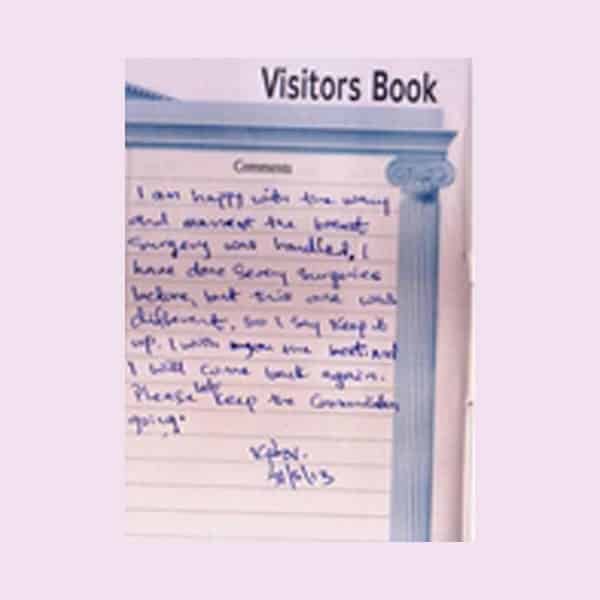 Visitors Book
Comments
I am happy with the way
and manner the breast
surgery was handled, I
have done seven surgeries
before, but this one was
different, so I say keep it
up. I wish you the best and
I will come back again.
Please let's keep the Communication
going.